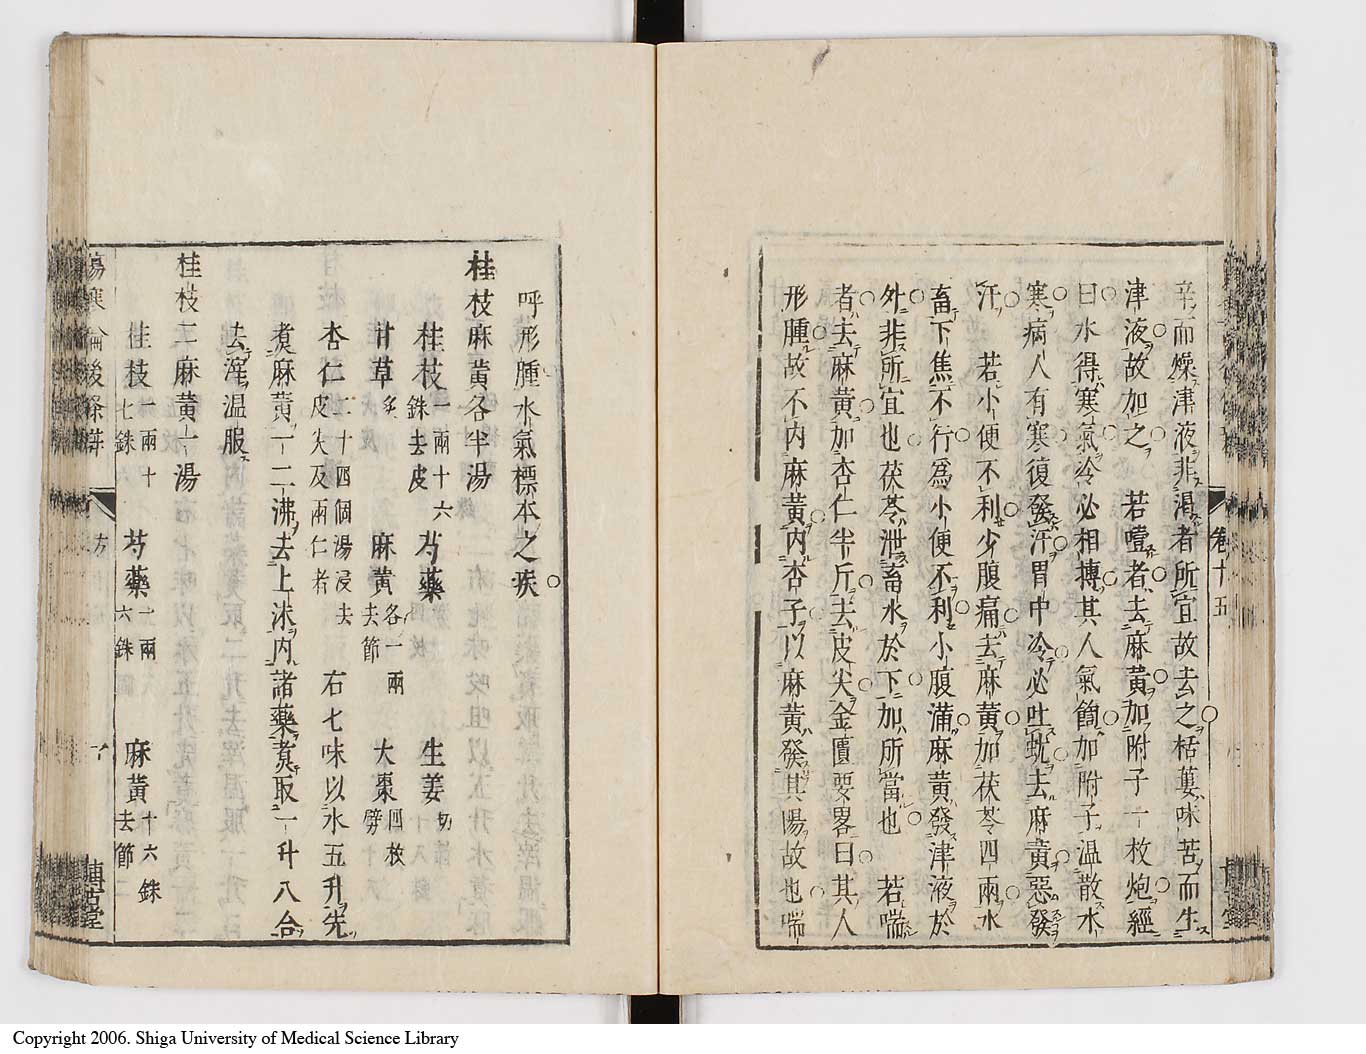 辛而燥津液非渇者所宜故去之栝蔞味苦而生
津液故加之　若噎者去麻黄加附子一枚炮經
曰水得寒氣冷必相摶其人氣䭇加附子温散水
寒病人有寒復發汗胃中冷必吐蚘去麻黄惡發
汗　若小便不利少腹痛去麻黄加茯苓四兩水
畜下焦不行爲小便不利小腹滿麻黄發津液於
外非所宜也茯苓泄畜水於下加所當也　若喘
者去麻黄加杏仁半斤去皮尖金匱要畧曰其人
形腫故不内麻黄内杏子以麻黄發其陽故也喘
卷十五
呼形腫水氣標本之疾
桂枝麻黄各半湯
桂枝一兩十六銖去皮　芍藥　生姜切
甘草炙　麻黄各一兩去節　大棗四枚劈
杏仁二十四個湯浸去皮尖及兩仁者　右七味以水五升先
煑麻黄一二沸去上沫内諸藥煑取一升八合
去滓温服
桂枝二麻黄一湯
桂枝一兩十七銖　芍藥一兩六銖　麻黄十六銖去節
傷寒論後條辨　方　一